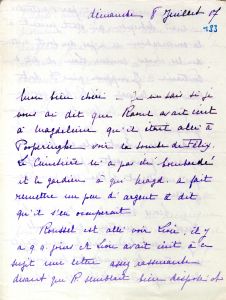 dimanche 8 Juillet 17
183
Mon bien cher — Je ne sais si je
vous ai dit que Raoul avait écrit
à Magdeleine qu'il était allé à
Poperinghe voir la tombe de Félix.
Le Cimetière n'a pas été bombardé
et le gardien à qui Magd. a fait
remettre un peu d'argent a dit
qu'il s'en occuperait.
Roussel est allé voir Loïc, il y
a qq. jours et Loïc avait écrit à ce
sujet une lettre assez rassurante
disant que R. semblait bien disposé et